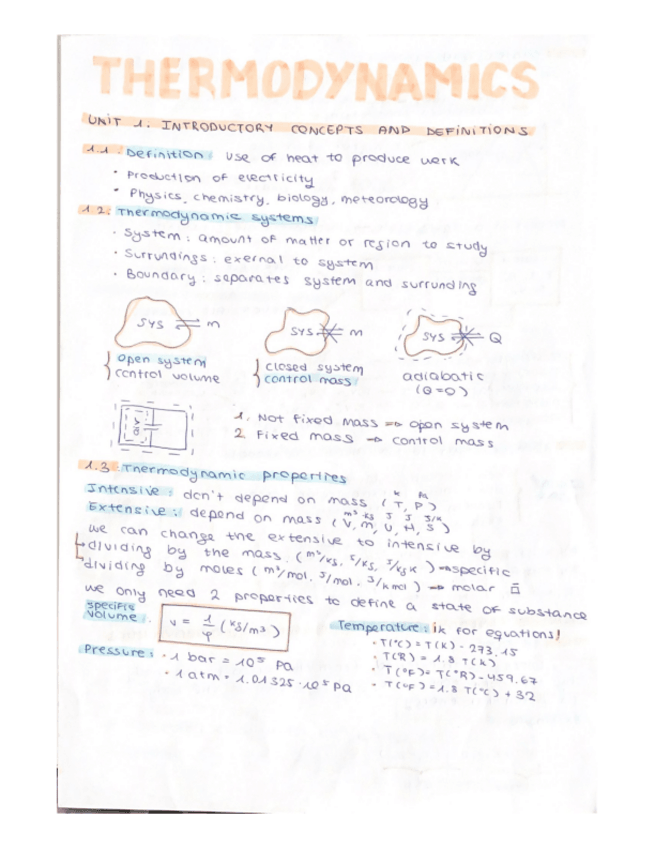 THERMODYNAMICS
UNIT 1. INTRODUCTORY CONCEPTS AND DEFINITIONS
1.1. Definition: Use of heat to produce work
· Production of electricity
· Physics, chemistry, biology, meteorology
1.2. Thermodynamic systems
· System: amount of matter or region to study
· Surrundings: exernal to system
· Boundary: separates system and surrunding
SYS m
SYS m
SYS Q
open system
control volume
closed system
control mass
adiabatic
(Q=0)
1. Not fixed mass ⇒ open system
2. Fixed mass → control mass
1.3. Thermodynamic properties
Intensive: don't depend on mass (T, P)
K Pa
Extensive: depend on mass (V, m, U, H, S)
m³ kg J J J/K
we can change the extensive to intensive by
dividing by the mass. (m³/kg, J/kg, J/kgK) ⇒ specific
dividing by moles (m³/mol, J/mol, J/kmol) → molar ū
we only need 2 properties to define a state of substance
specific
volume:
v = 1/ρ (kg/m³)
Temperature: ik for equations!
· T(°C) = T(K) - 273,15
· T(R) = 1.8 T(K)
· T(°F) = T(°R) - 459.67
· T(°F) = 1.8 T(°C) + 32
Pressure: · 1 bar = 10⁵ Pa
· 1 atm = 1.01325 · 10⁵ Pa